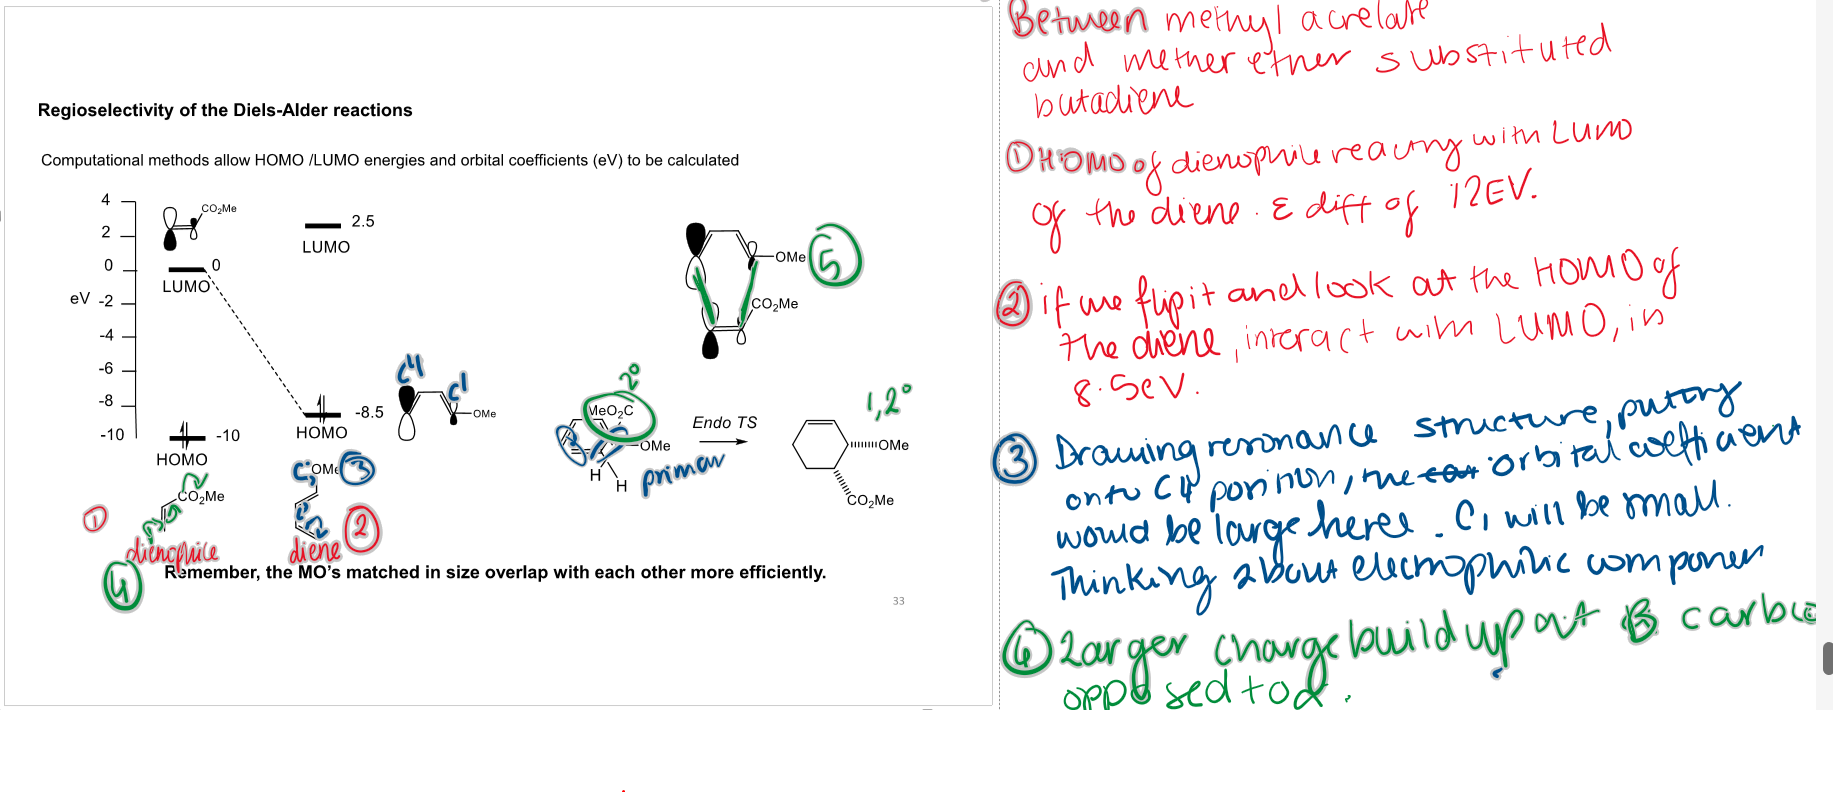 Regioselectivity of the Diels-Alder reactions
Computational methods allow HOMO /LUMO energies and orbital coefficients (eV) to be calculated
4
2
0
eV -2
-4
-6
-8
-10
CO₂Me
0
LUMO
2.5
LUMO
-8.5
HOMO
-10
HOMO
C4
C1
OMe
OMe
CO₂Me
5
CO₂Me
OMe
3
1
dienophile
diene
2
4
2°
MeO₂C
OMe
H
H
Endo TS
1,2°
OMe
CO₂Me
Remember, the MO's matched in size overlap with each other more efficiently.
33
Between methyl acrelate
and mether ether substituted
butadiene
① HOMO of dienophile reacting with LUMO
of the diene. E diff of 12EV.
② if we flip it and look at the HOMO of
the diene, interact with LUMO, is
8.5eV.
③ Drawing resonance structure, putting
onto C4 position, the orbital coefficient
would be large here. C1 will be small.
Thinking about electrophilic componen
④ Larger charge build up at B carbo
opposed to α.